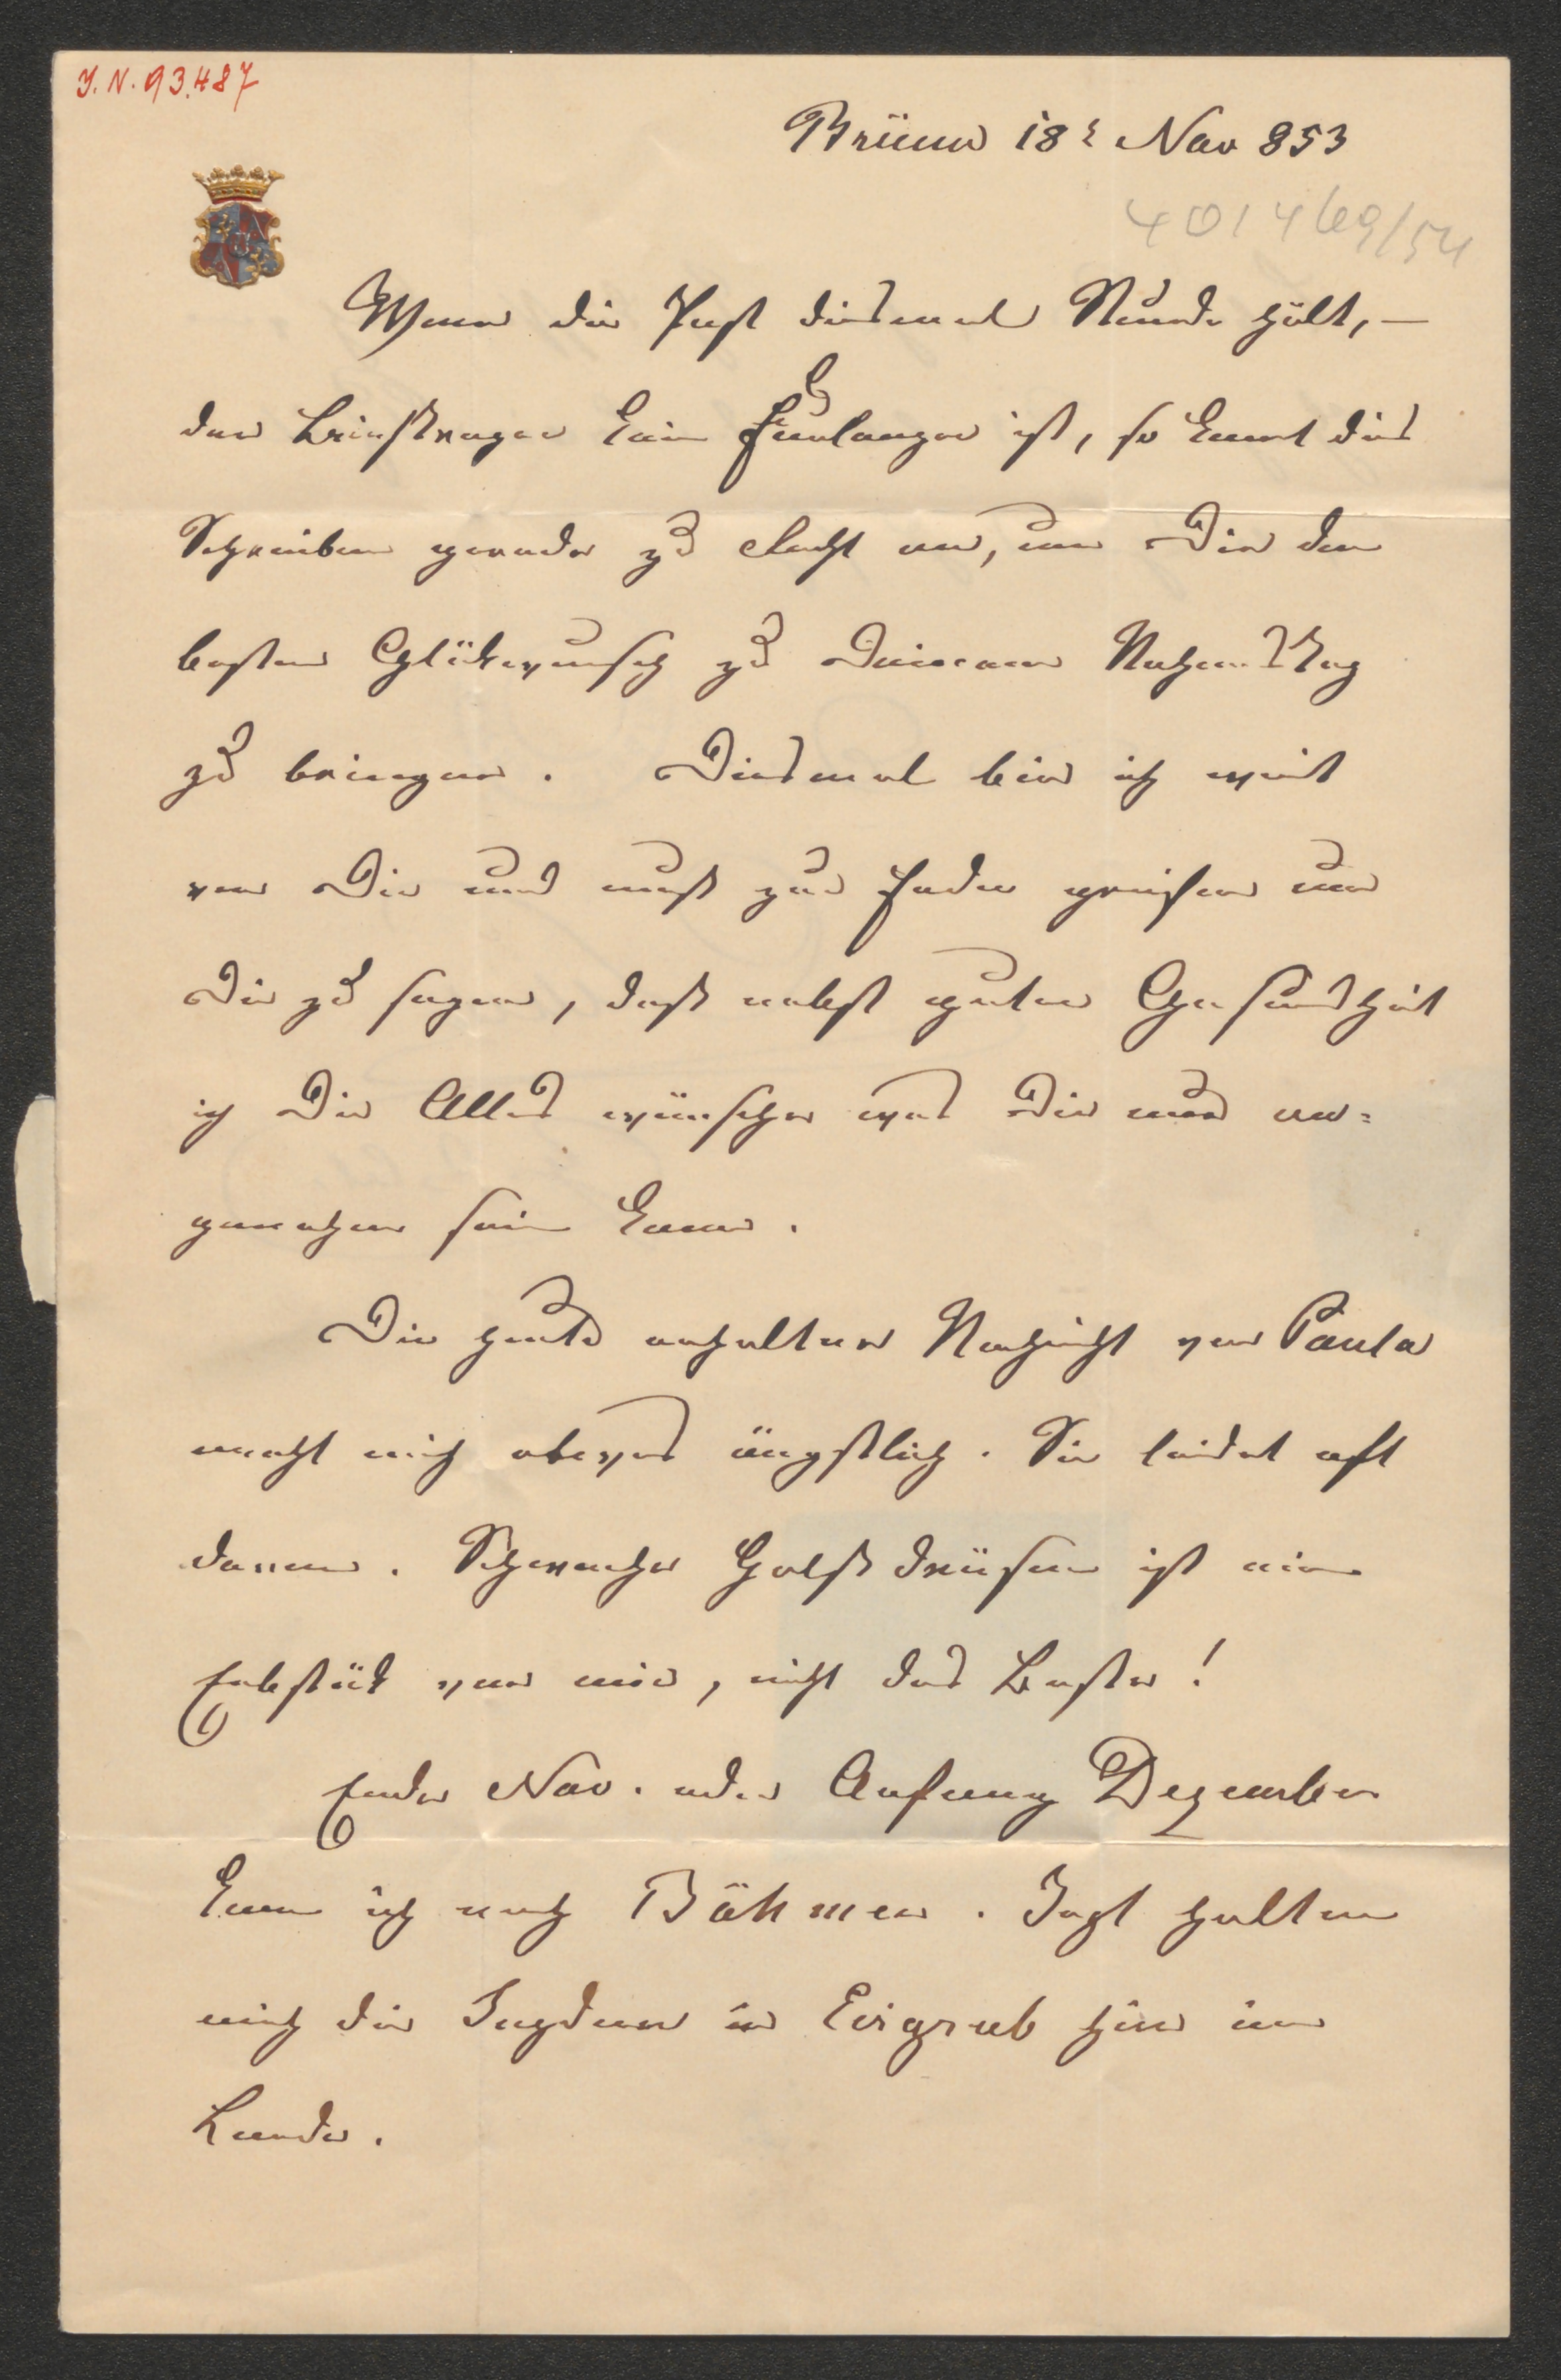 J. N. 93.487
Brünn 18t Nov 853
401469/54
Wenn die Post diesmal Stunde hält, —
der Briefträger kein Faulenzer ist, so kömt dies
Schreiben gerade zu recht an, um Dir den
besten Glükwunsch zu Deinem Nahmenstag
zu bringen. Diesmal bin ich weit
von Dir und muß zur Feder greifen um
Dir zu sagen, daß nebst guter Gesundheit
ich Dir Alles wünsche was Dir nur an=
genehm sein kann.
Die heute erhaltene Nachricht von Paula
macht mich etwas ängstlich. Sie leidet oft
daran. Schwache Halsdrüsen ist ein
Erbstük von mir, nicht das Beste!
Ende Nov. oder Anfang Dezember
kom ich nach Böhmen. Jezt halten
mich die Jagden in Eisgrub hier im
Lande.